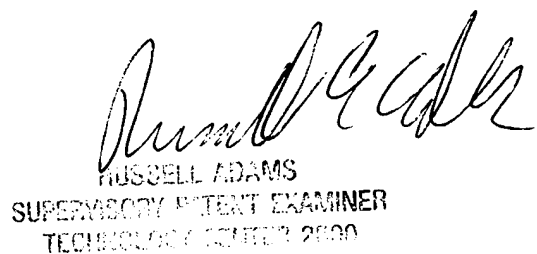 RUSSELL ADAMS
SUPERVISORY PATENT EXAMINER
TECHNOLOGY CENTER 2800